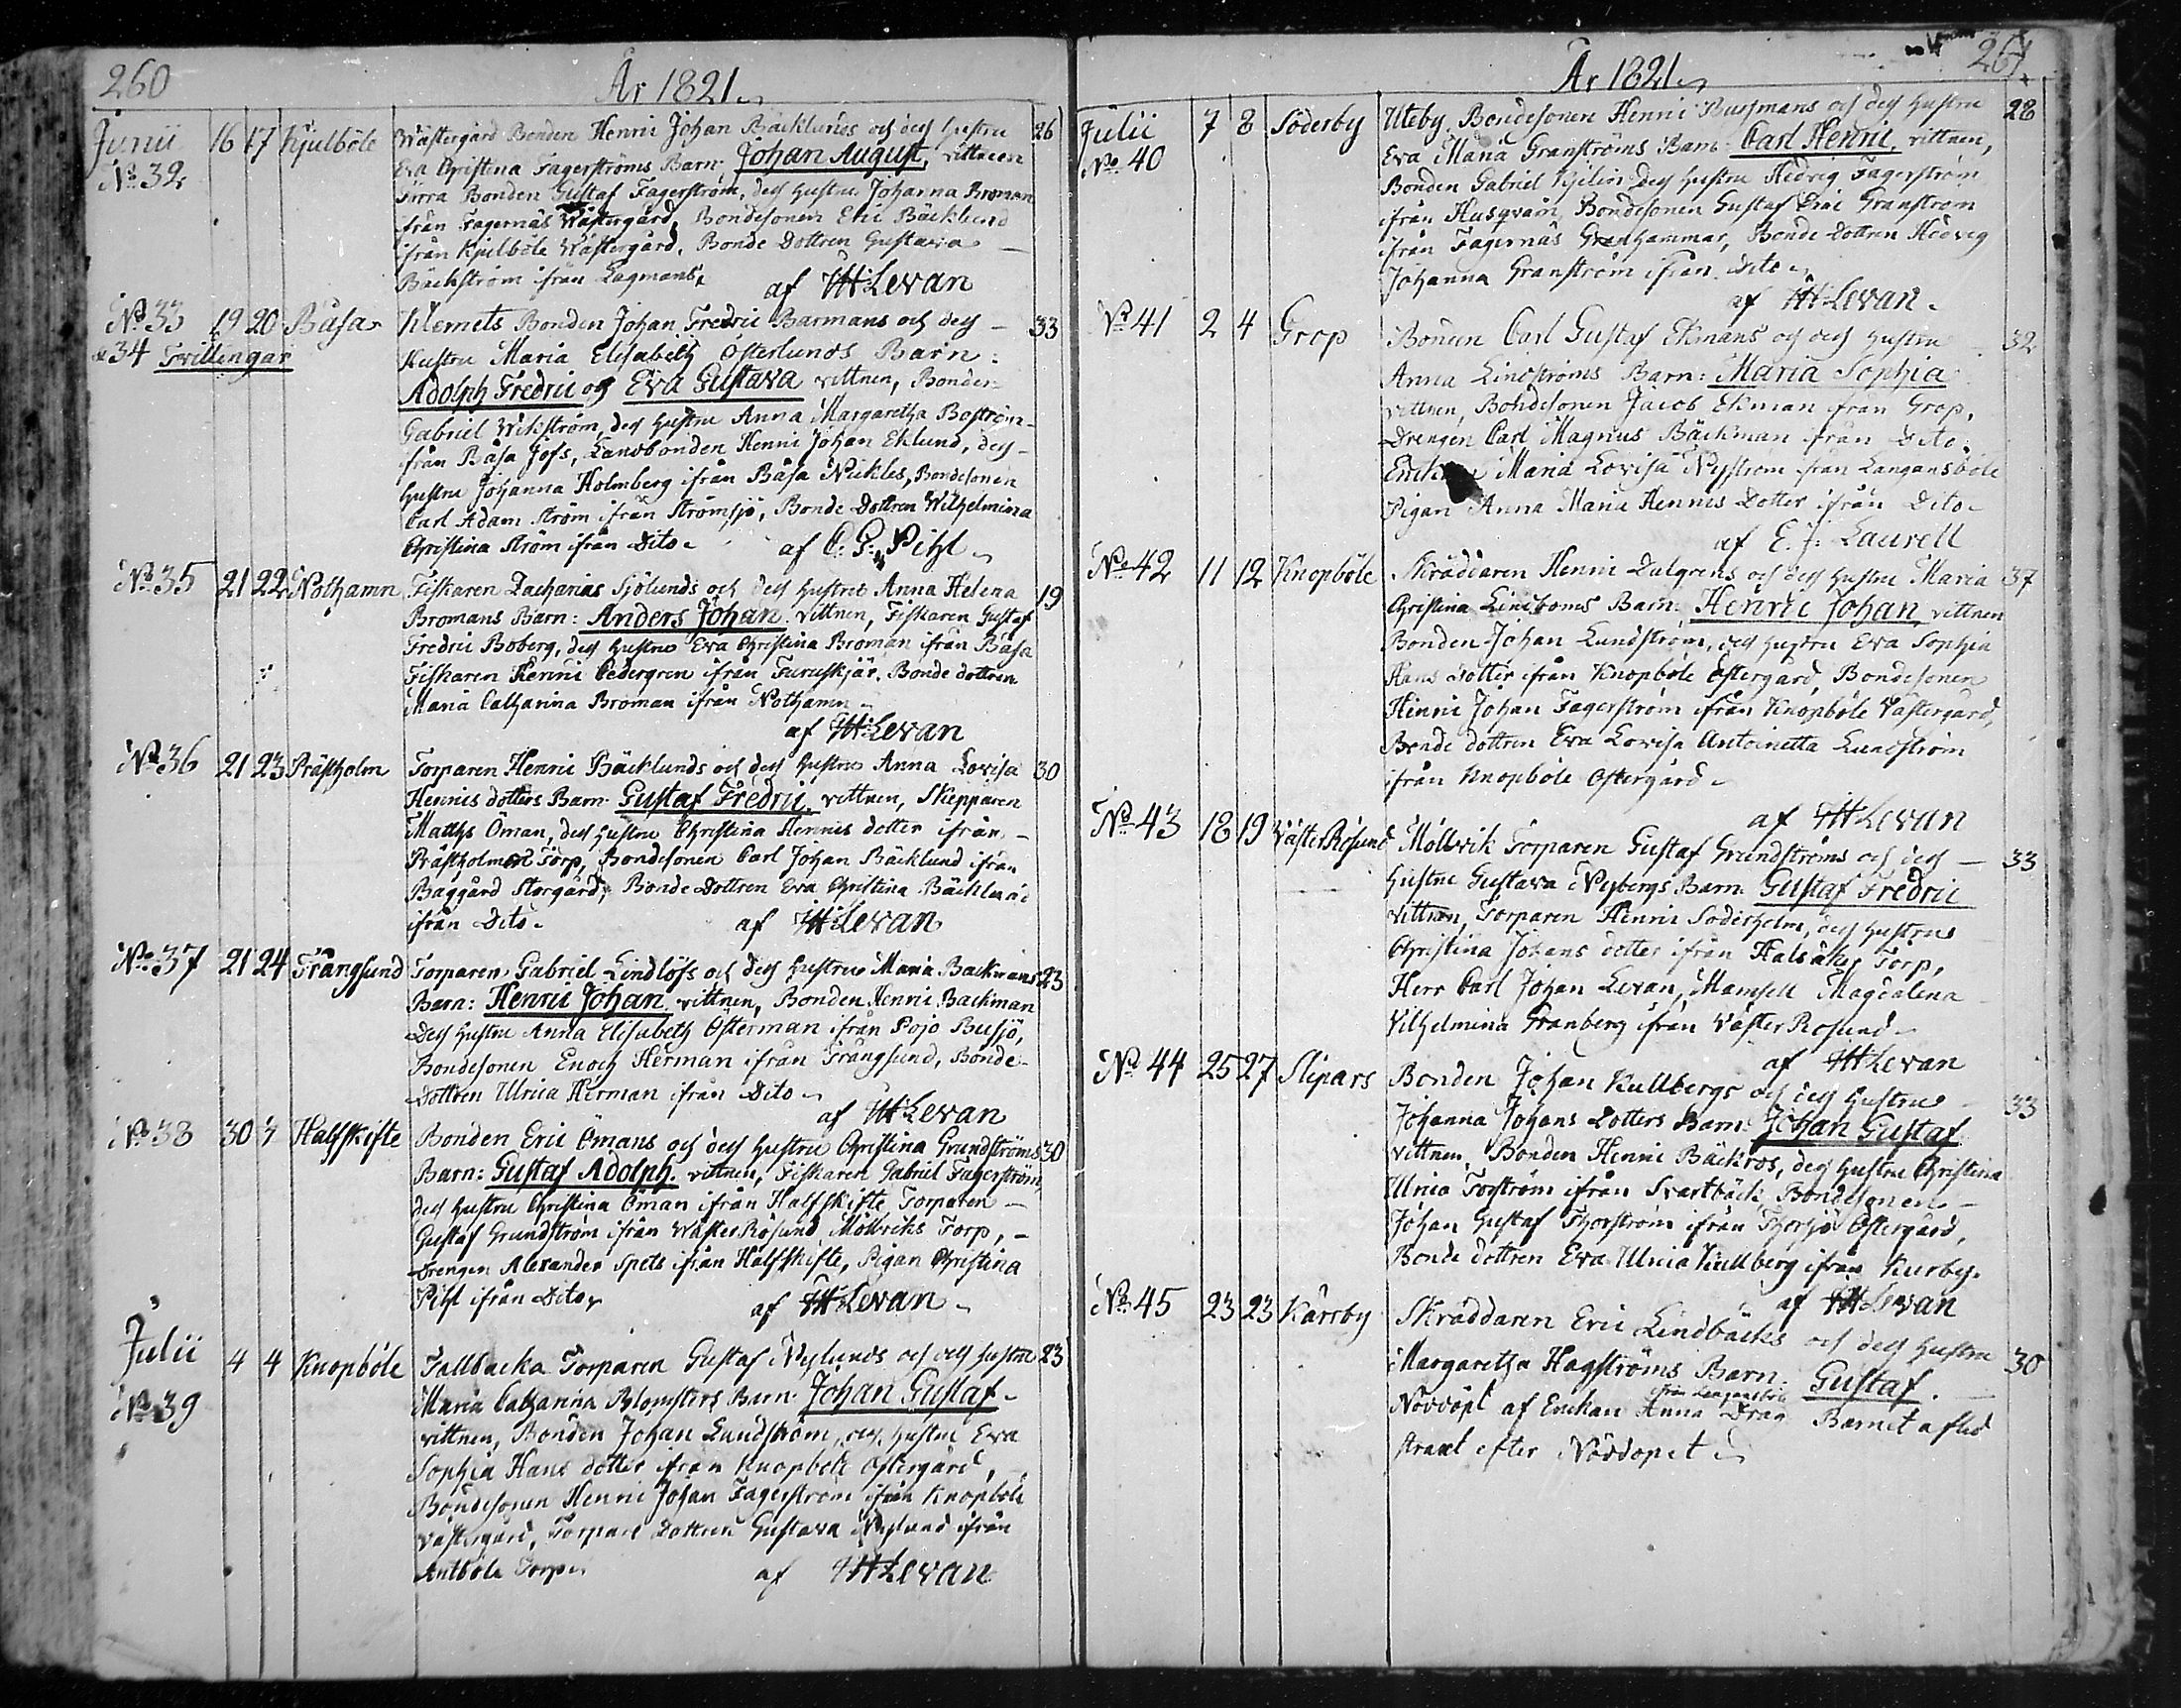 260
År 1821
Junii 16 17 Kjulböle Wästergård Bonden Henric Johan Bäcklunds och des hustru 26
N:o 32 Eva Christina Fagerströms Barn: Johan August, vittnen
Bonden Gustaf Fagerström, des hustru Johanna Broman
ifrån Fagernäs Wästergård, Bondesonen Eric Bäcklund
ifrån Kjulböle Wästergård, Bonde Dottren Gustava
Bäckström ifrån Lagmans,
af Levan
N:o 33 19 20 Båsa Klemets Bonden Johan Fredric Barmans och des 33
& 34 Tvillingar Hustru Maria Elisabeth Österlunds Barn:
Adolph Fredric och Eva Gustava vittnen, Bonden
Gabriel Wikström, des hustru Anna Margaretha Boström
från Båsa Jofs, Landbonden Henric Johan Eklund, des
hustru Johanna Holmberg ifrån Båsa Nickles, Bondesonen
Carl Adam Ström ifrån Strömsjö, Bonde Dottren Wilhelmina
Christina Ström ifrån Dito
af C: G: Pihl
N:o 35 21 22 Nothamn Fiskaren Zacharias Sjölunds och des hustru Anna Helena 19
Bromans Barn: Anders Johan. vittnen, Fiskaren Gustaf
Fredric Boberg, des hustru Eva Christina Broman ifrån Båsa
Fiskaren Henric Cedergren ifrån Furuskjär, Bonde dottren
Maria Catharina Broman ifrån Nothamn
af Levan
N:o 36 21 23 Prästholm Torparen Henric Bäcklunds och des hustru Anna Lovisa 30
Henrics dotters Barn: Gustaf Fredric. vittnen, Skepparen
Matths Öman, des hustru Christina Henrics dotter ifrån
Prästholm Torp, Bondesonen Carl Johan Bäcklund ifrån
Baggård Storgård, Bonde Dottren Eva Christina Bäcklund
ifrån Dito.
af Levan
N:o 37 21 24 Trångsund Torparen Gabriel Lindlöfs och des hustru Maria Backmans 23
Barn: Henric Johan, vittnen, Bonden Henric Backman
des hustru Anna Elisabeth Österman ifrån Pojo Busjö,
Bondesonen Enoch Herman ifrån Trångsund, Bonde
Dottren Ulrica Herman ifrån Dito
af Levan
N:o 38 30 3 Halfskifte Bonden Eric Ömans och des hustru Christina Grundströms 30
Barn: Gustaf Adolph. vittnen, Fiskaren Gabriel Fagerström,
des hustru Christina Öman ifrån Halfskifte, Torparen
Gustaf Grundström ifrån Wäster Rösund Möllviks Torp,
Drengen Alexander Spets ifrån Halfskifte, Pigan Christina
Pihl ifrån Dito
af Levan
Julii
N:o 39 4 4 Knopböle Fallbacka Torparen Gustaf Nylunds och des hustru 23
Maria Catharina Blomsters Barn: Johan Gustaf
vittnen, Bonden Johan Lundström, des hustru Eva
Sophia Hans dotter ifrån Knopböle Östergård,
Bondesonen Henric Johan Fagerström ifrån Knopböle
Västergård, Torpare Dottren Gustava Nylund ifrån
Antböle Torp
af Levan
261
År 1821
Julii 7 8 Söderby Uteby Bondesonen Henric Bussmans och des hustru 28
N:o 40 Eva Maria Granströms Barn: Carl Henric, vittnen,
Bonden Gabriel Kjelin des hustru Hedvig Fagerström
ifrån Husqvarn, Bondesonen Gustaf Eric Granström
ifrån Fagernäs Granhammar, Bonde Dottren Hedvig
Johanna Granström ifrån dito
af Levan
N:o 41 2 4 Grop Bonden Carl Gustaf Ekmans och des hustru 32
Anna Lindströms Barn: Maria Sophia
vittnen, Bondesonen Jacob Ekman ifrån Grop,
Drengen Carl Magnus Bäckman ifrån Dito,
Maria Lovisa Nyström ifrån Langansböle
Pigan Anna Maria Henrics Dotter ifrån Dito
af E. J: Laurell
N:o 42 11 12 Knopböle Skräddaren Henric Dalgrens och des hustru Maria 37
Christina Lindroms Barn: Henric Johan, vittnen
Bonden Johan Lundström, des hustru Eva Sophia
Hans dotter ifrån Knopböle Östergård, Bondesonen
Henric Johan Fagerström ifrån Knopböle Västergård,
Bonde dottren Eva Lovisa Antoinetta Lundström
ifrån Knopböle Östergård
af Levan
N:o 43 18 19 Väster Rösund Möllvik Torparen Gustaf Grundströms och des 33
hustru Gustava Nybergs Barn: Gustaf Fredric
vittnen, Torparen Henric Söderholm, des hustru
Christina Johans dotter ifrån Halsåker Torp,
Herr Carl Johan Levan, Mamsell Magdalena
Vilhelmina Granberg ifrån Väster Rosund
af Levan
N:o 44 25 27 Slipars Bonden Johan Kullbergs och des hustru 33
Johanna Johans Dotters Barn: Johan Gustaf
vittnen, Bonden Henric Bäckros, des hustru Christina
Ulrica Forström ifrån Svartbäck, Bondesonen
Johan Gustaf Thorström ifrån Thorsjö Östergård,
Bonde dottren Eva Ulrica Kullberg ifrån Kurby.
af Levan
N:o 45 23 23 Kårrby Skräddaren Eric Lindbäcks och des hustru 30
Margaretha Hagströms Barn: Gustaf.
Nöddöpt af Enckan Anna Drag från Langansböle Barnet afled
straxt efter Nöddopet